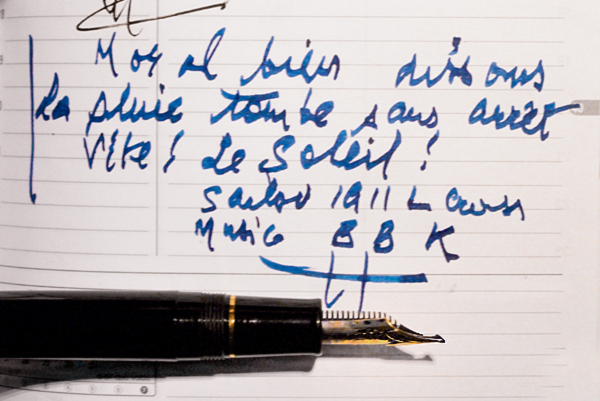 bien disons
La pluie tombe sans arrêt
Vite! Le Soleil!
Sailor 1911 L
Music B B K